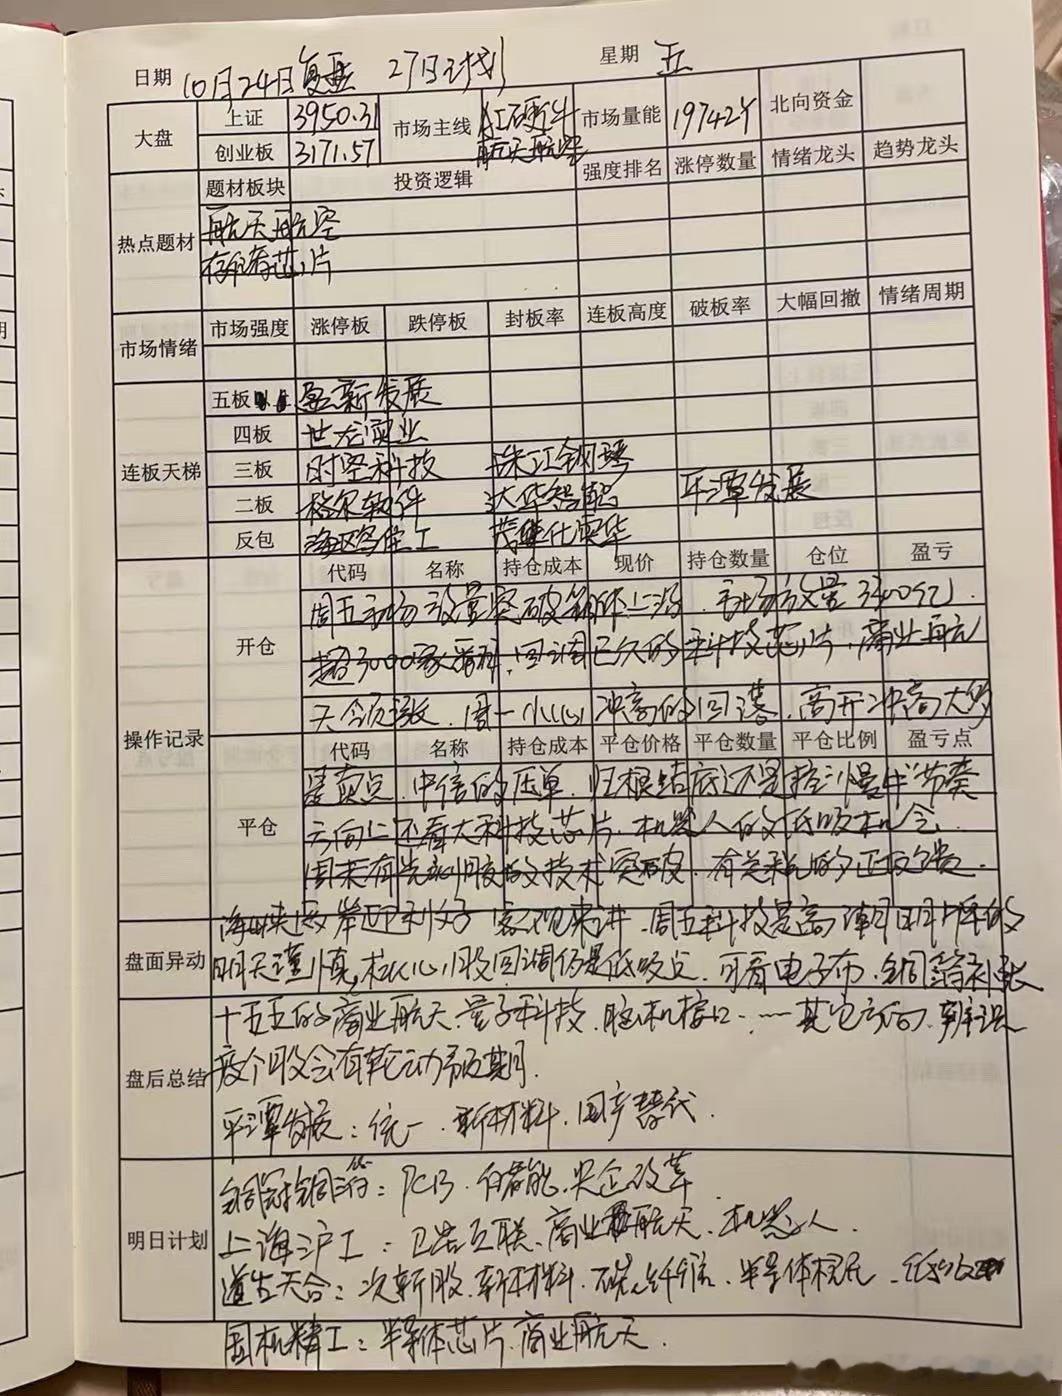 日期 10月24日复盘 27日计划 星期 五
大盘 上证 3950.31 市场主线 AI硬件 市场量能 19742Y 北向资金
创业板 3171.57 航天航空
题材板块 投资逻辑 强度排名 涨停数量 情绪龙头 趋势龙头
热点题材 航天航空
存储芯片
市场情绪 市场强度 涨停板 跌停板 封板率 连板高度 破板率 大幅回撤 情绪周期
连板天梯 五板以上 盈新发展
四板 世龙实业
三板 时空科技 珠江钢琴
二板 格尔软件 达华智能 平潭发展
反包 海鸥住工 茂化实华
操作记录 开仓 代码 名称 持仓成本 现价 持仓数量 仓位 盈亏
周五市场放量突破箱体上沿，市场放量3300亿，
超3000家，回调已久的科技芯片，商业航
天领涨，周一小心冲高的回落，高开冲高大多
平仓 代码 名称 持仓成本 平仓价格 平仓数量 平仓比例 盈亏点
是卖点，中信的压单，归根结底还是控"慢牛"节奏
方向上还看大科技芯片，机器人的低吸机会，
周末有光刻胶的技术突破，有关税的正反馈，
盘面异动 海峡两岸 客观来讲，周五科技是高潮 的
明天谨慎，核心股回调仍是低吸点，可看电子布，铜箔补涨
盘后总结 十五五的商业航天、量子科技、脑机接口……其它方向，辨识
度个股会有轮动预期。
平潭发展：统一、新材料、国产替代。
明日计划 铜冠铜箔：PCB、储能、央企改革
上海沪工：卫星互联、商业航天、机器人。
道生天合：次新股、新材料、碳纤维、半导体
国机精工：半导体芯片，商业航天。